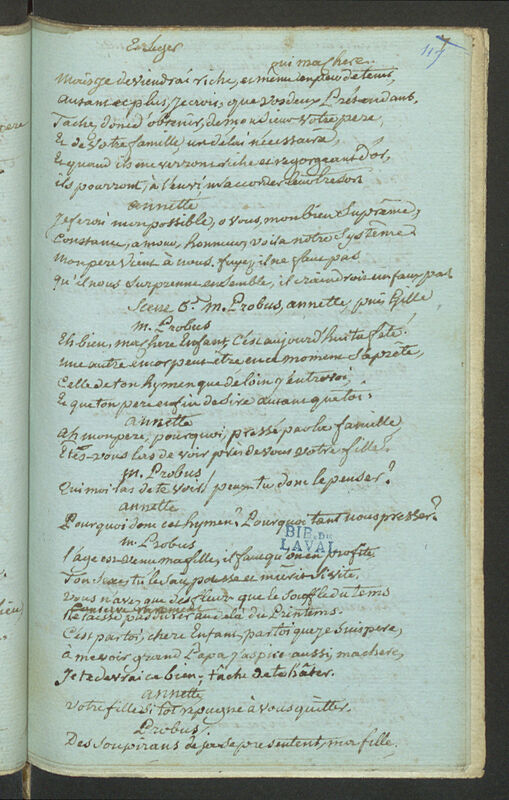 Léger
oui ma chere.
Mais je deviendrai riche, et même en peu de tems,
autant et plus, je crois, que vos deux Prétendants,
Tache, donc d'obtenir, de monsieur votre pere,
Et de votre famille un délai nécessaire,
Et quand ils me verront riche et regorgeant d'or,
ils pourront, à l'envi m'accorder leur trésor
annette
Je ferai mon possible, o vous, mon bien Suprême,
Constance, amour, honneur, voila notre Système
Mon pere vient à nous, fuyez, il ne faut pas
qu'il nous Surprenne ensemble, il craindroit un faux pas
Scene 6e. M. Probus, annette, puis Gille
M. Probus
Eh bien, ma chere Enfant, C'est aujourd'hui ta fête!
une autre encor peut-être en ce moment S'aprête,
Celle de ton hymen que de loin j'entrevoi
Et que ton pere enfin desire autant que toi.
annette
Ah mon pere, pourquoi, pressé par la famille
Etes-vous las de voir près de vous votre fille?
M. Probus
Qui moi las de te voir! peux-tu donc le penser?
annette
Pourquoi donc cet hymen? Pourquoi tant nous presser?
M. Probus
l'age est venu ma fille, il faut qu'on en profite
Ton Sexe, tu le Sais, passe et meurit Si vite.
vous n'avez que des fleurs que le Souffle du tems
Ne laisse pas durer au dela du Printems.
C'est par toi, chere Enfant, par toi que j'espere,
a me voir grand Papa j'aspire aussi, ma chere,
Je te devrai ce bien; tâche de te hâter.
annette
Votre fille Si tôt repugne à vous quitter.
Probus
Des Soupirans de se presentent, ma fille.
BIB. DE
LAVAL